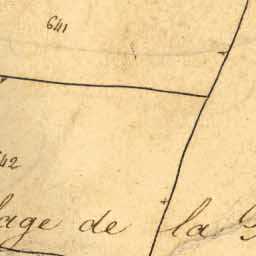 641
642
lage de la